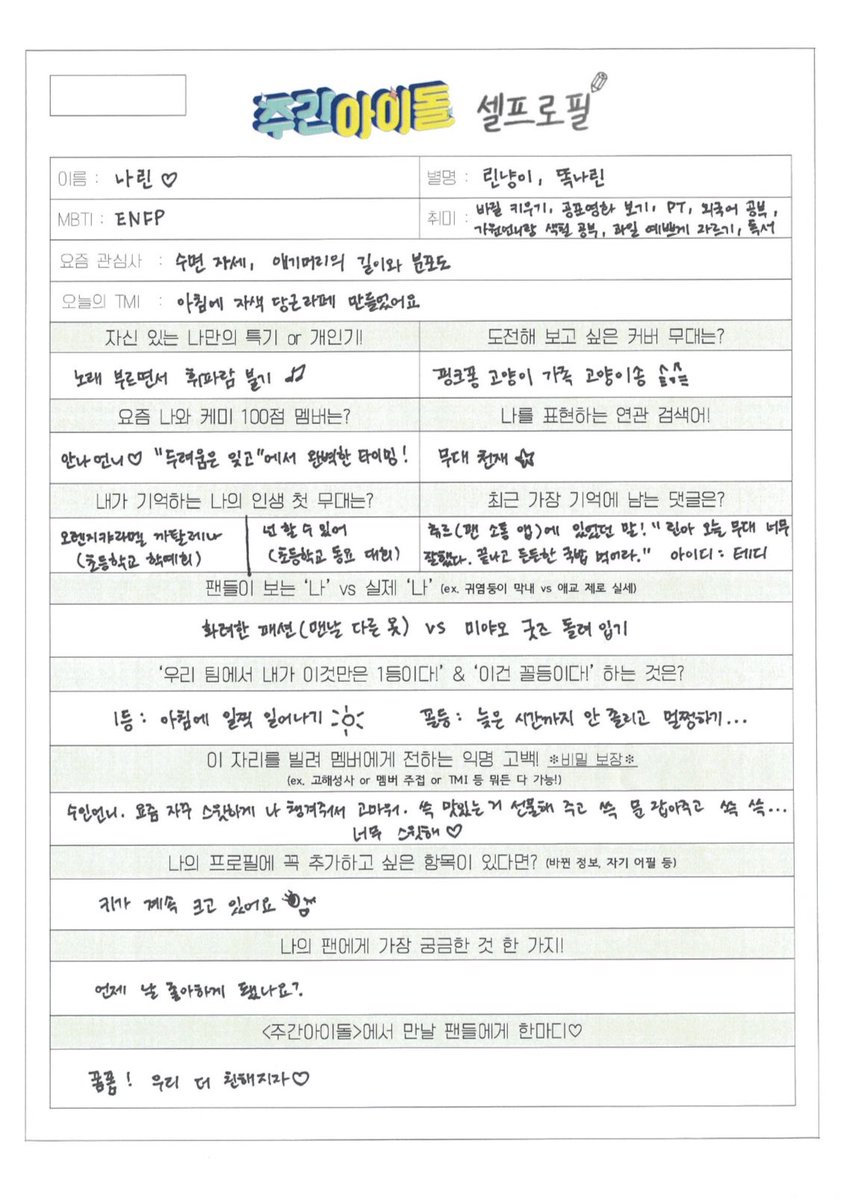 주간아이돌 셀프로필
이름 : 나린♡
별명 : 린냥이, 똑나린
MBTI : ENFP
취미 : 바질 키우기, 공포영화 보기, PT, 외국어 공부,
가원언니랑 색칠 공부, 과일 예쁘게 자르기, 독서
요즘 관심사 : 수면 자세, 애기머리의 길이와 분포도
오늘의 TMI : 아침에 자색 당근라페 만들었어요
자신 있는 나만의 특기 or 개인기!
노래 부르면서 휘파람 불기 ♫
도전해 보고 싶은 커버 무대는?
핑크퐁 고양이 가족 고양이송
요즘 나와 케미 100점 멤버는?
안나언니♡ "두려움은 잊고"에서 완벽한 타이밍!
나를 표현하는 연관 검색어!
무대 천재 ☆
내가 기억하는 나의 인생 첫 무대는?
오렌지캬라멜 까탈레나
(초등학교 학예회)
넌 할 수 있어
(초등학교 동요 대회)
최근 가장 기억에 남는 댓글은?
(팬 소통 앱)에 있었던 말! "린아 오늘 무대 너무
잘했다. 끝나고 든든한 국밥 먹어라." 아이디 : 테디
팬들이 보는 ‘나’ vs 실제 ‘나’ (ex. 귀염둥이 막내 vs 애교 제로 실세)
화려한 패션(맨날 다른 옷) vs 미야오 굿즈 돌려 입기
‘우리 팀에서 내가 이것만은 1등이다!’ & ‘이건 꼴등이다!’ 하는 것은?
1등 : 아침에 일찍 일어나기
꼴등 : 늦은 시간까지 안 졸리고 멀쩡하기...
이 자리를 빌려 멤버에게 전하는 익명 고백! *비밀 보장*
(ex. 고해성사 or 멤버 주접 or TMI 등 뭐든 다 가능!)
수인언니. 요즘 자꾸 스윗하게 나 챙겨줘서 고마워. 쓱 맛있는 거 선물해 주고 쓱 문 잡아주고 쓱 쓱...
너무 스윗해♡
나의 프로필에 꼭 추가하고 싶은 항목이 있다면? (바뀐 정보, 자기 어필 등)
키가 계속 크고 있어요
나의 팬에게 가장 궁금한 것 한 가지!
언제 날 좋아하게 됐나요?
<주간아이돌>에서 만날 팬들에게 한마디♡
꼼꼼! 우리 더 친해지자♡